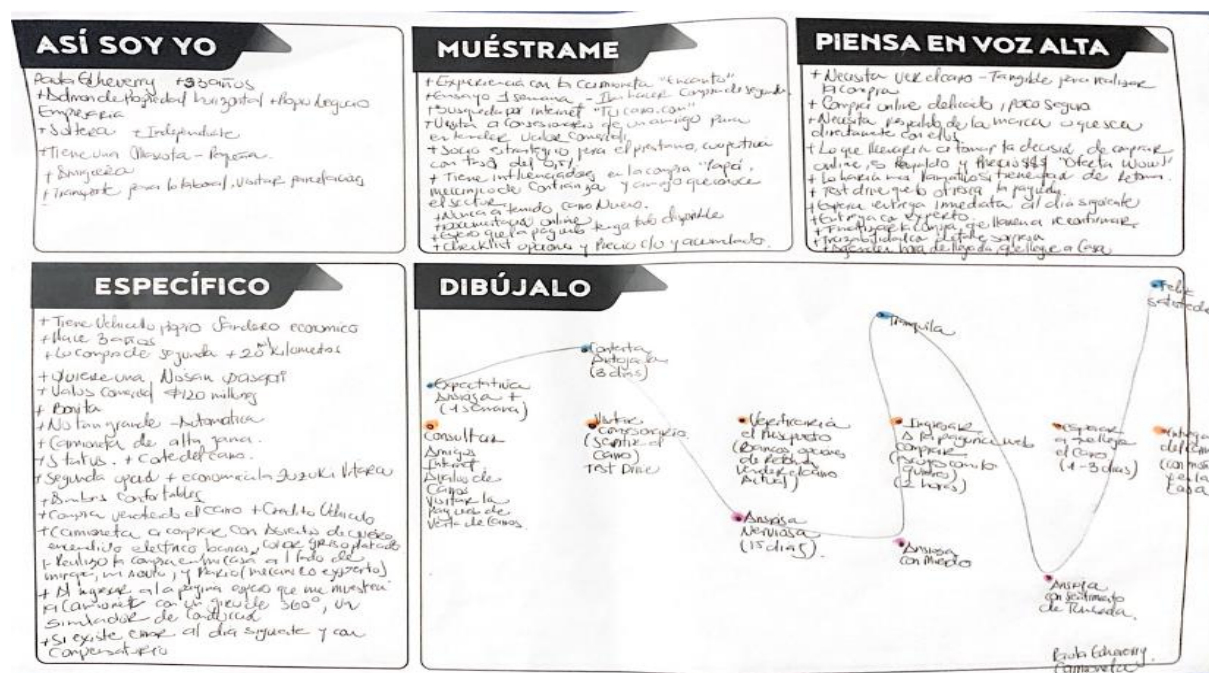 ASÍ SOY YO
Paula Etcheverry +33 años
+ Admon de Propiedad horizontal +
Empresaria
+ Soltera + Independiente
+ Tiene una Mascota - Pequeña.
+ Transporte para lo laboral, visitar
MUÉSTRAME
+ Experiencia con la camioneta "Encanto"
+ Ensayo 1 semana - Iba hacer compra de segunda
+ Busqueda por internet "Tu carro.com"
+ Visita a concesionarios de un amigo para
entender valor comercial,
+ Socio estrategico para el prestamo, cooperativa
con tasa del
+ Tiene influenciadores en la compra "Papá,
mecanico de confianza y amigo que conoce
el sector.
+ Nunca a tenido carro Nuevo.
+ Documentacion online
+ Espero que la pagina tenga todo disponible
+ Checklist opciones y Precio c/u y acumulado.
PIENSA EN VOZ ALTA
+ Necesita ver el carro - Tangible para realizar
la compra
+ Compra online delicado, poco seguro
+ Necesita respaldo de la marca o que sea
directamente con ellos
+ Lo que llevaria a tomar la decisión de comprar
online, es Respaldo y Precio $$$ "Oferta Wow!"
+ Lo haria mas llamativo si tiene
+ Test drive que lo ofrezca la pagina.
+ Espera entrega inmediata al dia siguiente
+ Entrega con experto.
+ Finalizar la compra, que llamen a reconfirmar.
+ Trazabilidad con detalle sorpresa
+ Agendar hora de llegada, que llegue a Casa
ESPECÍFICO
+ Tiene Vehiculo propio Sandero economico
+ Hace 3 años
+ Lo compro de segunda + 20 mil kilometros
+ Quiere una Nissan Qasqai
+ Valor comercial $120 millones
+ Bonita
+ No tan grande - Automatica
+ Camioneta de alta gama.
+ Status. + Corte del carro.
+ Segunda opcion + economica la Zuzuki Vitara
+ Confortables
+ Compra vendiendo el carro + Credito Vehiculo
+ Camioneta a comprar con Asientos de cuero
encendido electrico color gris o plateado
+ Realizo la compra en mi casa al lado de
mi novio, y Mario (mecanico experto)
+ Al ingresar a la pagina espero que me muestren
la camioneta con un giro de 360°, un
simulador de conduccion
+ Si existe error al dia siguiente y con
compensatorio
DIBÚJALO
Expectativa
Ansiosa +
(1 semana)
Contenta
Antojada
(3 dias)
Tranquila
Feliz
Consultar
Amigos
Internet
Visitar la
Pag web de
Venta de Carros.
Visitar
concesionario
(Sentir el
carro)
Test Drive
Verificaria
el Presupuesto
(Bancos, opciones
vender el carro
Actual)
Ingresar
a la pagina web
comprar
(2 horas)
Esperar
a que llegue
el Carro
(1-3 dias)
Entrega
del carro
en la
casa
Ansiosa
Nerviosa
(15 dias)
Ansiosa
con Miedo
Ansiosa
con sentimiento
de Tumbada.
Paula Etcheverry
Camioneta